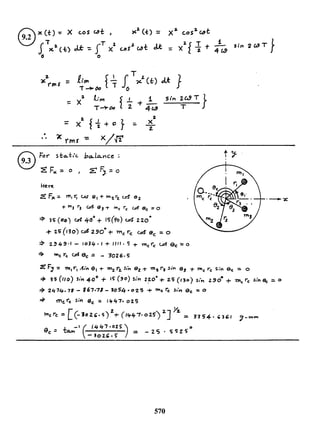 9.2 x(t) = X cos ωt , x²(t) = X² cos² ωt
∫₀ᵀ x²(t) dt = ∫₀ᵀ X² cos² ωt dt = X² { T/2 + 1/4ω sin 2ωT }
x²rms = lim T→∞ { 1/T ∫₀ᵀ x²(t) dt }
= X² lim T→∞ { 1/2 + 1/4ω sin 2ωT / T }
= X² { 1/2 + 0 } = X²/2
∴ x rms = X/√2
9.3 For static balance :
Σ Fx = 0 , Σ Fy = 0
Here
Σ Fx = m₁ r₁ cos θ₁ + m₂ r₂ cos θ₂
+ m₃ r₃ cos θ₃ + mc rc cos θc = 0
⇒ 35 (110) cos 40° + 15 (90) cos 220°
+ 25 (130) cos 290° + mc rc cos θc = 0
⇒ 2949.1 - 1034.1 + 1111.5 + mc rc cos θc = 0
⇒ mc rc cos θc = - 3026.5
Σ Fy = m₁ r₁ sin θ₁ + m₂ r₂ sin θ₂ + m₃ r₃ sin θ₃ + mc rc sin θc = 0
⇒ 35 (110) sin 40° + 15 (90) sin 220° + 25 (130) sin 290° + mc rc sin θc = 0
⇒ 2474.78 - 867.78 - 3054.025 + mc rc sin θc = 0
⇒ mc rc sin θc = 1447.025
mc rc = [ (-3026.5)² + (1447.025)² ]^½ = 3354.6361 g-mm
θc = tan⁻¹ ( 1447.025 / -3026.5 ) = - 25.5525°
y
x
m₁
r₁
θ₁
θc
mc
rc
θ₂
θ₃
r₂
r₃
m₂
m₃
570